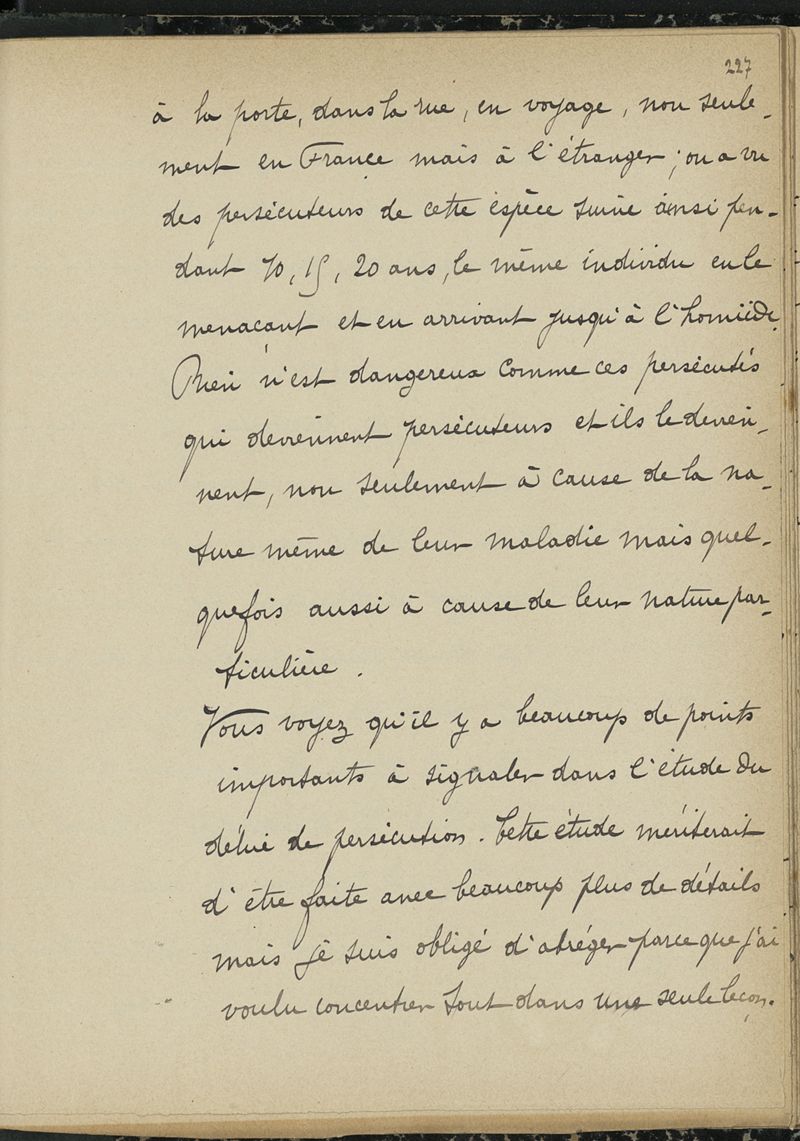 227
à la porte, dans la rue, en voyage, non seule-
ment en France mais à l'étranger ; on a vu
des persécuteurs de cette espèce suivre ainsi pen-
dant 10, 15, 20 ans, le même individu en le
menaçant et en arrivant jusqu'à l'homicide.
Rien n'est dangereux comme ces persécutés
qui deviennent persécuteurs et ils le devien-
nent, non seulement à cause de la na-
ture même de leur maladie mais quel-
quefois aussi à cause de leur nature par-
ticulière.
Vous voyez qu'il y a beaucoup de points
importants à signaler dans l'étude du
délire de persécution. Cette étude mériterait
d'être faite avec beaucoup plus de détails
mais je suis obligé d'abréger parce que j'ai
voulu concentrer tout dans une seule leçon.